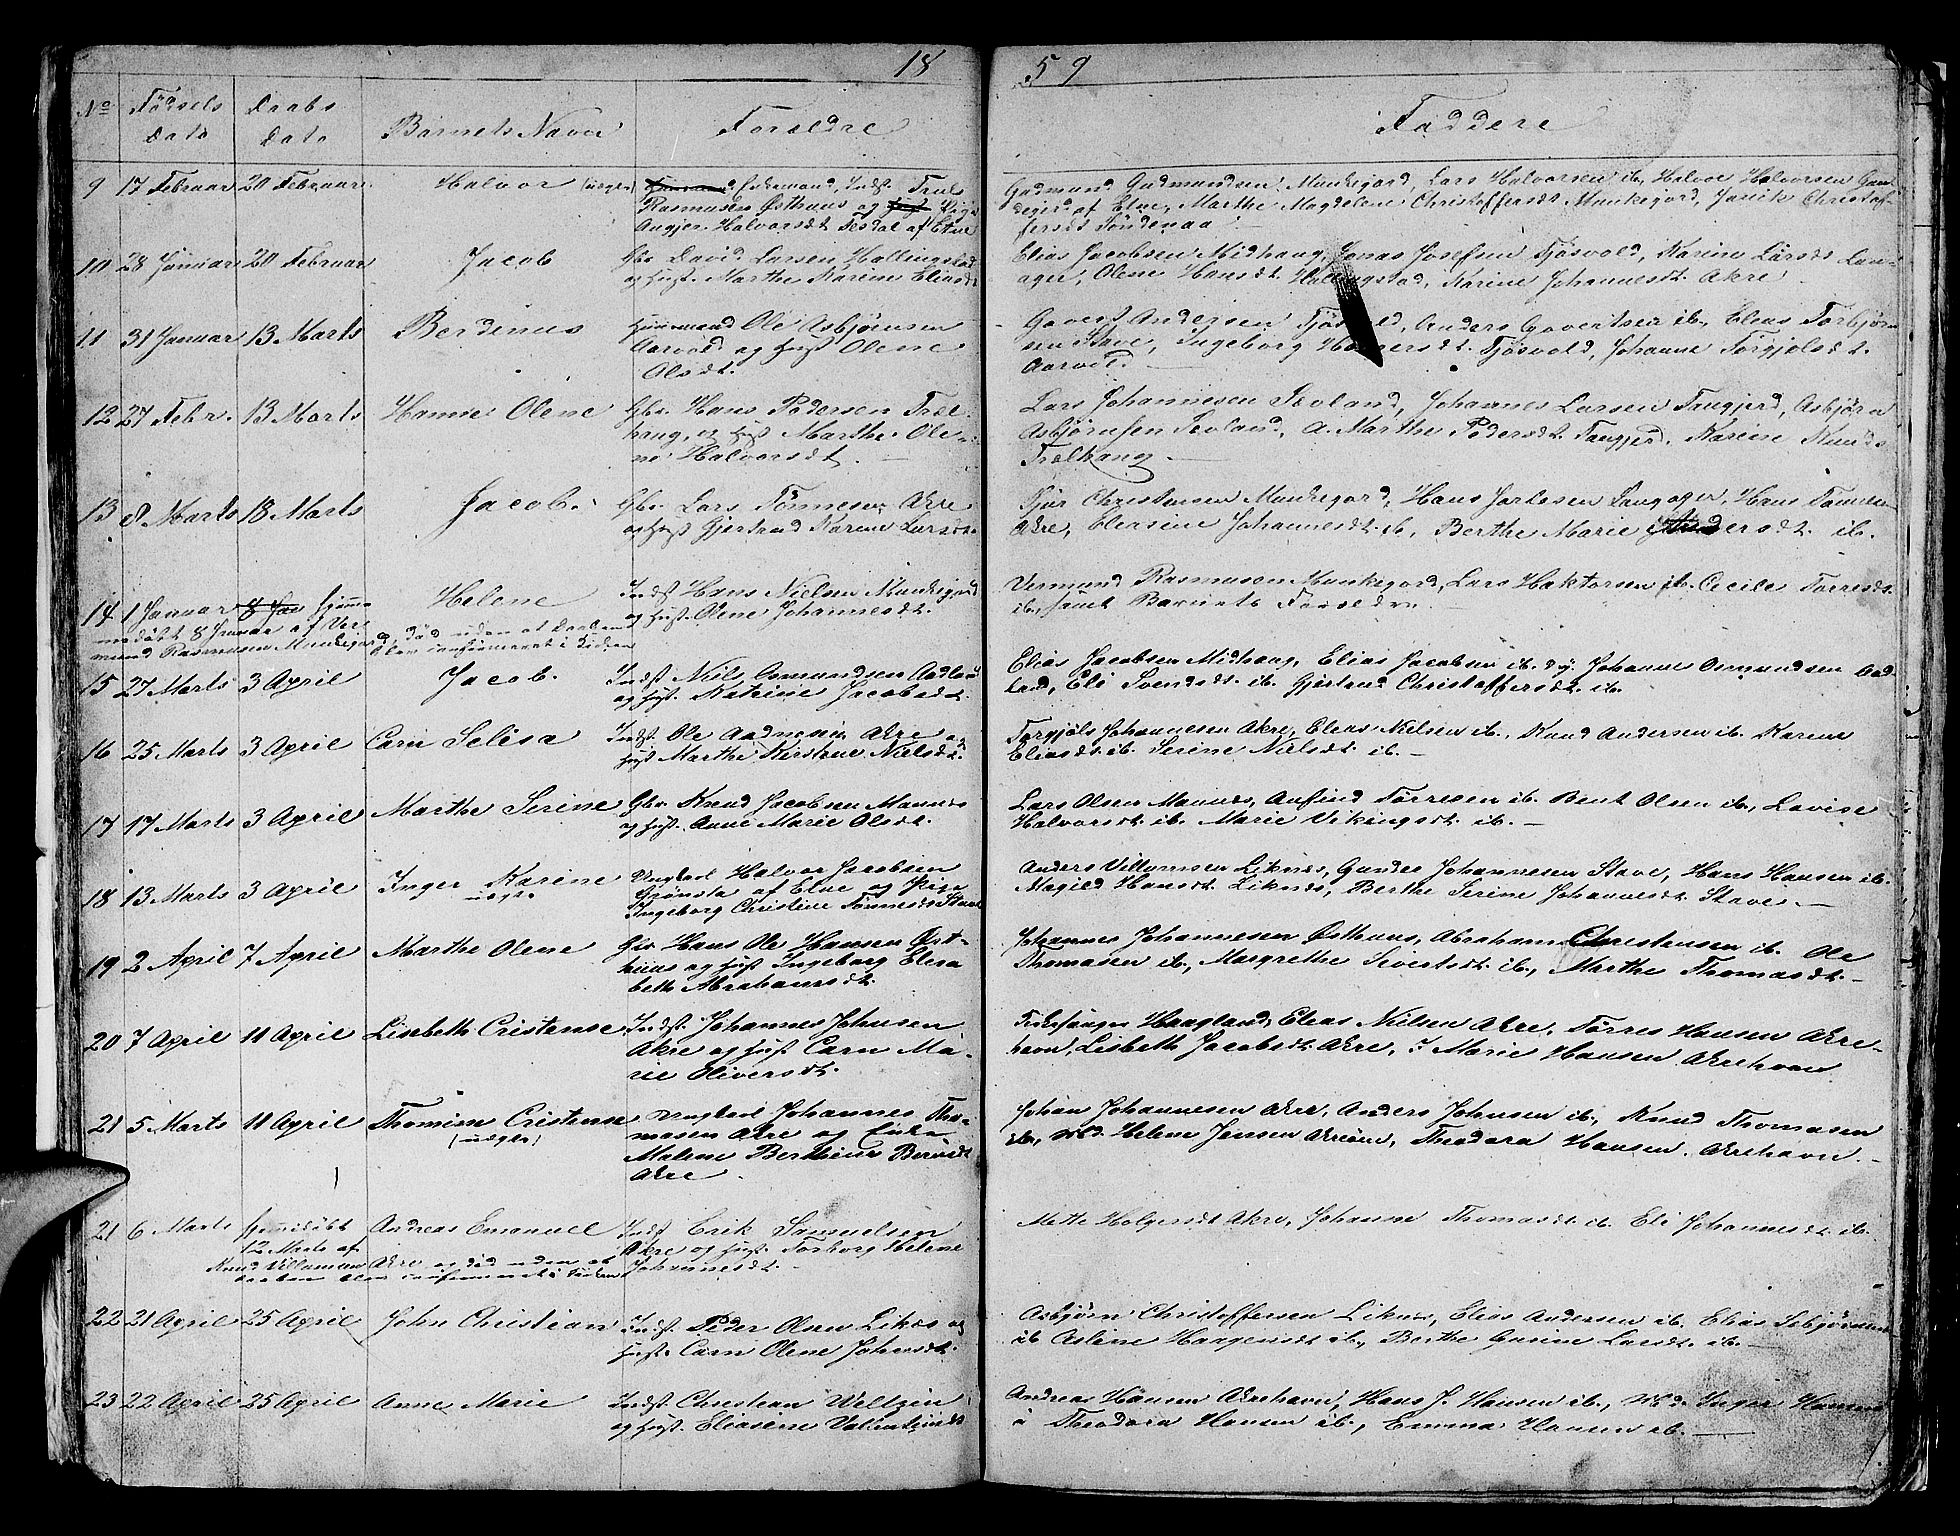 18 59
No Fødsels Dato Daabs Dato Barnets Navn Forældre Faddere
9 17 Februar 20 Februar Halvor (uægte) Indst. Truls
Rasmusen Østhuus og Pige
Halvorsdt Tesdal af Etne
Gudmund Gudmundsen Munkegord, Lars Halvorsen ib, Halvor Halvorsen
af Etne, Marthe Magdelene Christoffersdt Munkegord, Janik Christof-
fersdt Tøndenaa
10 28 Januar 20 Februar Jacob Gbr. David Larsen Hallingstad
og hust. Marthe Karine Eliasdt
Elias Jacobsen Midhaug, Jonas Josefsen Tjøsvold, Karine Larsdt Lan-
ager, Olene Hansdt. Hallingstad, Karine Johannesdt Akre
11 31 Januar 13 Marts Berdinus Huusmand Ole Asbjørnsen
Aarvold og hust Olene
Olsdt.
Govert Andersen Tjøsvold, Anders Govertsen ib., Elias Torbjørn-
sen Stave, Ingeborg Holgersdt. Tjøsvold, Johanne Torgjelsdt.
Aarvold. —
12 27 Febr. 13 Marts Hanne Olene Gbr. Hans Pedersen Træl-
haug, og hust Marthe Ole-
ne Halvorsdt. —
Lars Johannesen Sevland, Johannes Larsen Tangjerd, Asbjørn
Asbjørnsen Sevland, A. Marthe Pedersdt. Tangjerd, Karine Knudsdt
Trælhaug —
13 8 Marts 18 Marts Jacob. Gbr. Lars Tønnesen Akre
og hust Gjertrud Karine Larsdt.
Christensen Munkegord, Hans Langager, Hans Tønnesen
Akre, Elensine Johannesdt. ib, Berthe Marie Andersdt. ib.
14 1 Januar 8 Jan hjemme- Helene Indst Hans Nielsen Munkegord
og hust. Olene Johannesdt.
medøbt 8 Januar af Ver-
mund Rasmusen Munkegord, død uden at Daaben
blev confirmeret i Kirken
Vermund Rasmusen Munkegord, Lars Haktorsen ib. Cecile Torresdt.
ib, samt Barnets Forældre.
15 27 Marts 3 April Jacob. Indst. Niels Osmundsen Aadland
og hust. Katrine Jacobsdt.
Elias Jacobsen Midhaug, Elias Jacobsen ib. d.y. Johannes Osmundsen Aad-
land, Eli Svendsdt. ib. Gjertrud Christoffersdt. ib.
16 25 Marts 3 April Carn Selesa Indst. Ole Aadnesen Akre og
hust Marthe Kirstine Nielsdt.
Torgjels Johannesen Akre, Elias Nielsen ib., Knud Andersen ib. Karine
Eliasdt. ib. Serine Nielsdt ib. —
17 17 Marts 3 April Marthe Serine Gbr. Knud Jacobsen Mannes
og hust. Anne Marie Olsdt.
Lars Olsen Mannes, Anfind Torresen ib. Bent Olsen ib., Lovise
Halvorsdt. ib. Marie Vikingsdt ib. —
18 13 Marts 3 April Inger Karine Ungkarl Halvor Jacobsen
uægte Grønsta af Etne og Pige
Ingeborg Christine Tønnesdt Stave
Anders Villumsen Liknes, Gunder Johannesen Stave, Hans Hansen ib.
Magild Hansdt. Liknes, Berthe Serine Johannesdt. Stave. —
19 2 April 7 April Marthe Olene Gbr Hans Ole Hansen Øst-
huus og hust Ingeborg Elesa
beth Abrahamsdt.
Johannes Johannesen Østhuus, Abraham Christensen ib. Ole
Thomasen ib., Margrethe Sivertsdt. ib., Marthe Thomasdt. —
20 7 April 11 April Lisebeth Cristense Indst. Johannes Johnsen
Akre og hust Carn Ma-
rie Oliversdt.
Kirkesanger Haagland, Elias Nielsen Akre, Torres Hansen Akre-
havn, Lisbeth Jacobsdt. Akre, J Marie Hansen Akrehavn
21 5 Marts 11 April Thomine Cristense Ungkarl Johannes Tho-
(uægte) masen Akre og Enke
Malene Berthine Berntsdt
Akre
Johan Johannesen Akre, Anders Johnsen ib., Knud Thomasen
ib., Md. Helene Jensen Akreøen, Theodora Hansen. Akrehavn. —
21 6 Marts hjemmedøbt Andreas Emanuel Indst Erik Samuelsen
12 Marts af Akre og hust. Torborg Helene
Knud Villumsen Akre og død uden at Johannesdt. —
daaben blev confirmeret i Kirken
Mette Holgersdt Akre, Johanne Thomasdt. ib. Eli Johannesdt. ib.
22 21 April 25 April John Christian Indst. Peder Olsen Liknes og
hust. Carn Olene Johnsdt.
Asbjørn Christoffersen Liknes, Elias Andersen ib. Elias Sebjørnsen
ib Asline Haagensdt ib., Berthe Gurine Larsdt. ib. —
23 22 April 25 April Anne Marie Indst. Christian Weltzin
og hust. Eliasine Valentinsdt
Andreas Hansen Akrehavn, Hans J. Hansen ib., Md. Inger Hansen
Theodora Hansen ib., Emma Hansen ib. —